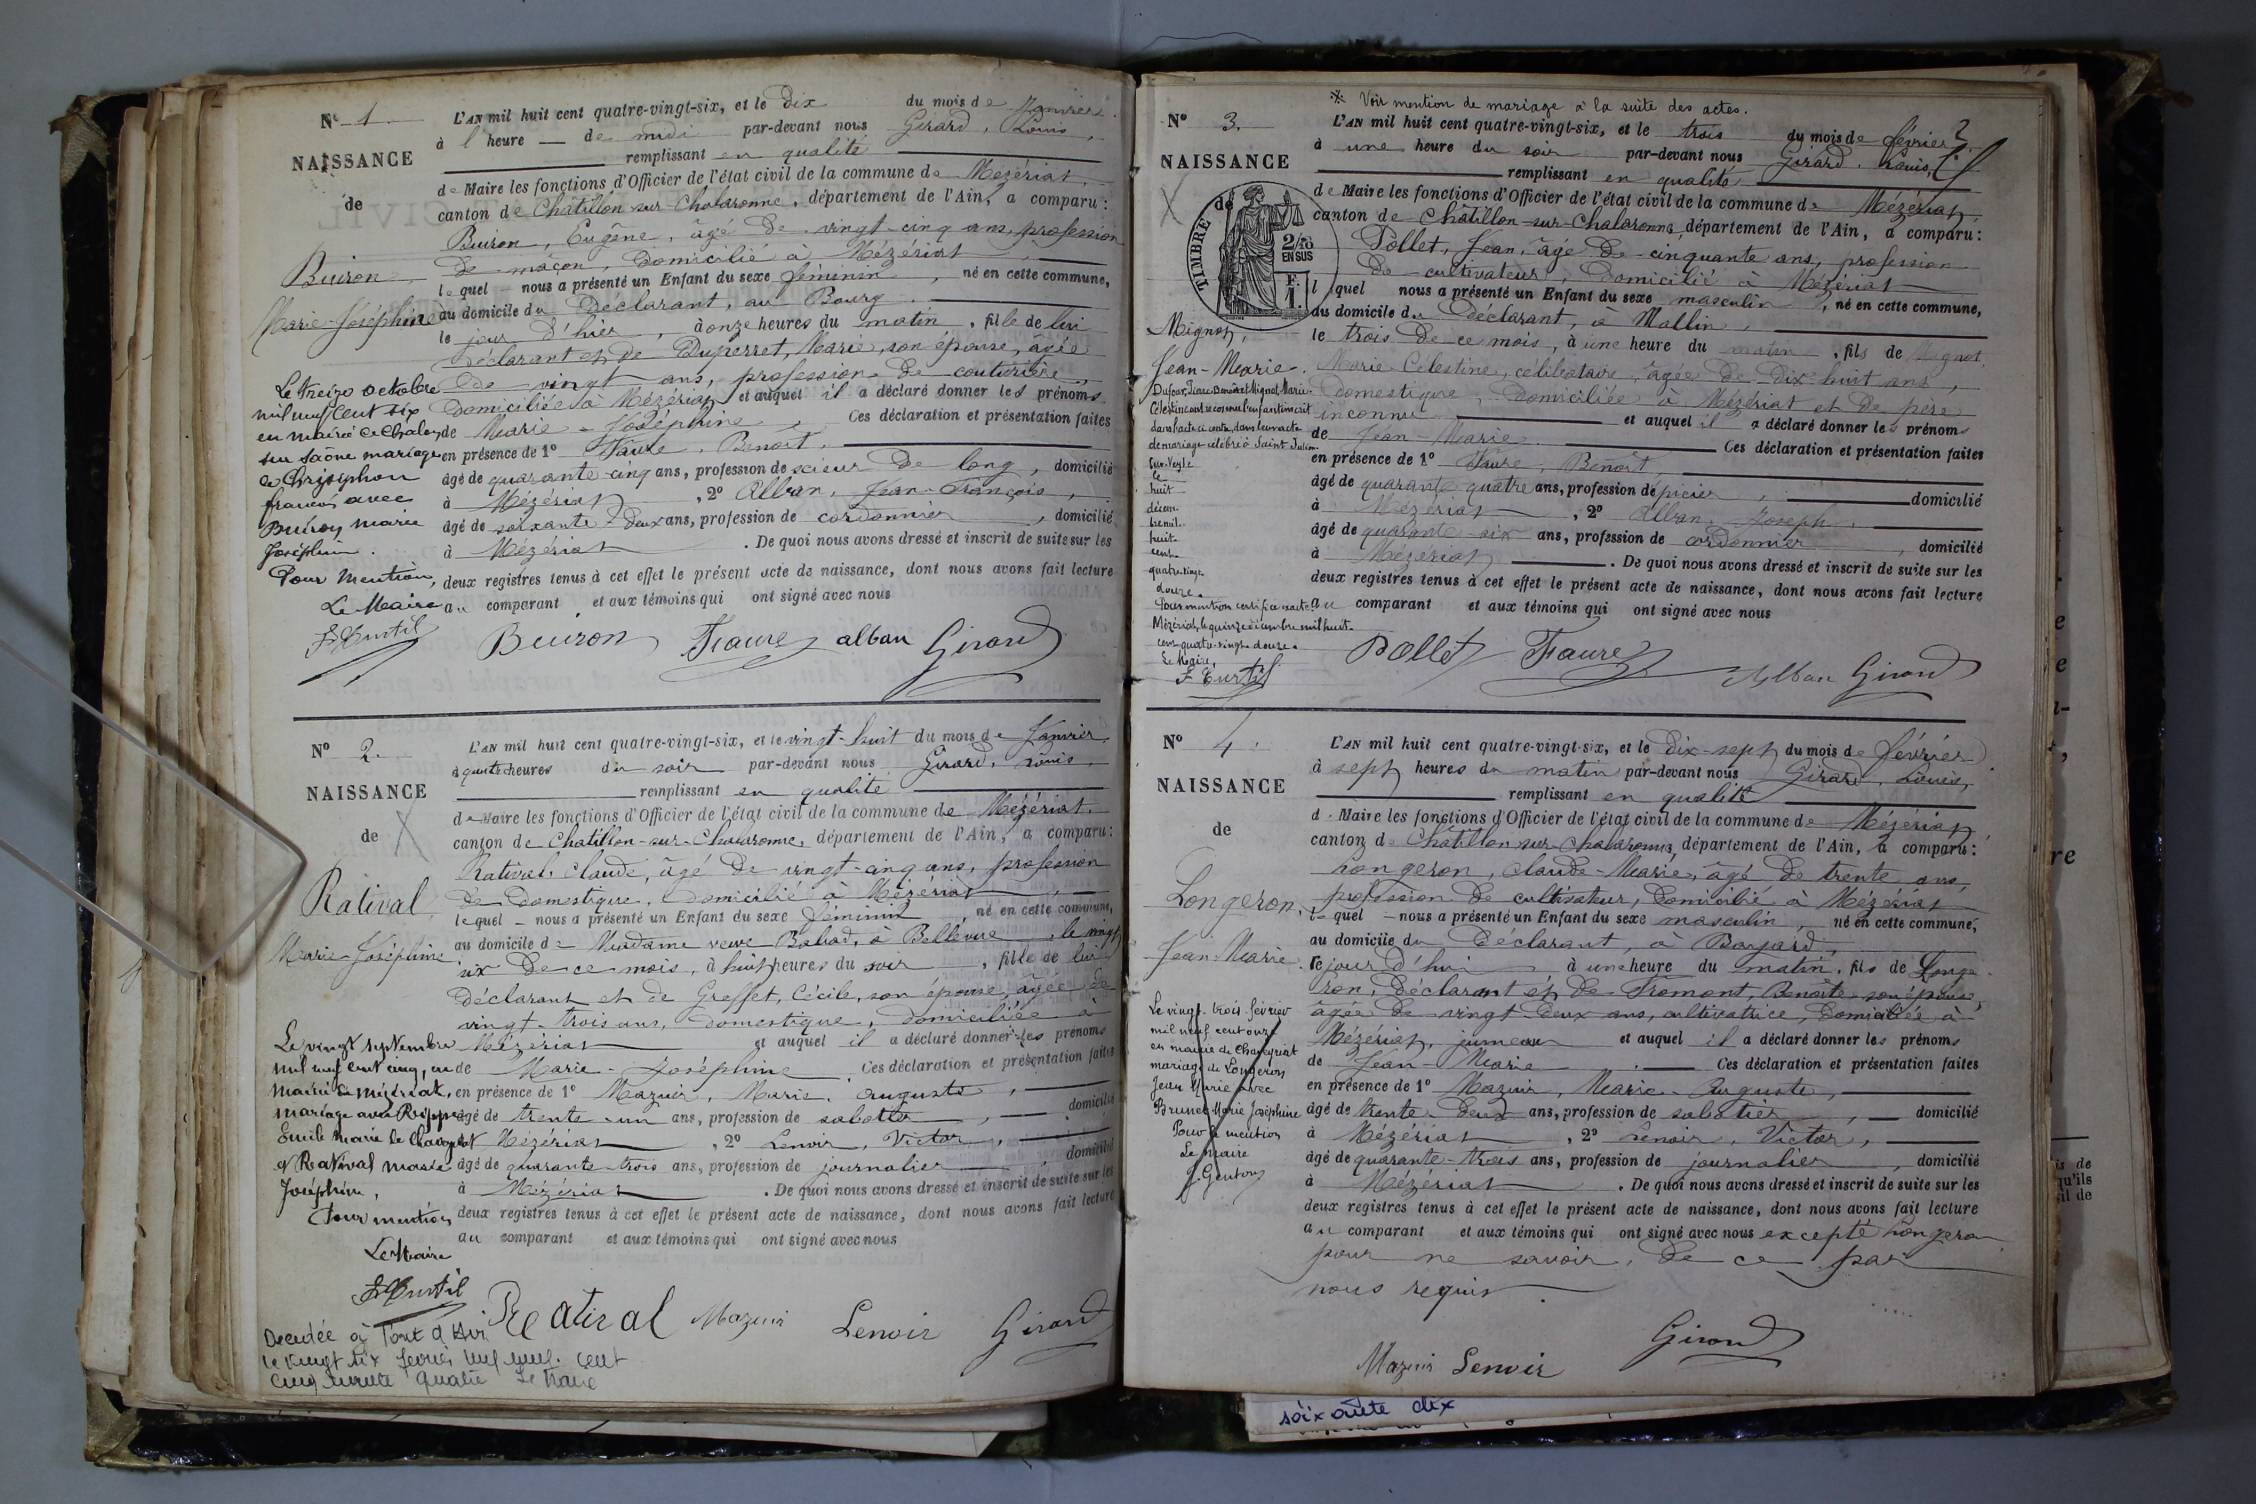 N° 1
NAISSANCE
de
Buiron
Marie-Joséphine
Le treize octobre
mil neuf cent six
en mairie de Chalon
sur Saône mariage
de
francois avec
Buiron Marie
Joséphine.
Pour mention,
Le Maire
L'AN mil huit cent quatre-vingt-six, et le dix du mois de Janvier
à l' heure — de midi par-devant nous Girard, Louis,
remplissant en qualité
de Maire les fonctions d'Officier de l'état civil de la commune de Mézériat,
canton de Châtillon-sur-Chalaronne, département de l'Ain, a comparu:
Buiron, Eugène, âgé de vingt-cinq ans, profession
de maçon, domicilié à Mézériat,
lequel nous a présenté un Enfant du sexe féminin, né en cette commune,
au domicile du Déclarant, au Bourg.
le jour d'hier, à onze heures du matin, fille de lui
déclarant et de Duperret, Marie, son épouse, âgée
de vingt ans, profession de couturière,
domiciliée à Mézériat et auquel il a déclaré donner les prénoms
de Marie-Joséphine. Ces déclaration et présentation faites
en présence de 1° Faure, Benoît,
âgé de quarante-cinq ans, profession de scieur de long, domicilié
à Mézériat, 2° Alban, Jean-François,
âgé de soixante-deux ans, profession de cordonnier, domicilié
à Mézériat. De quoi nous avons dressé et inscrit de suite sur les
deux registres tenus à cet effet le présent acte de naissance, dont nous avons fait lecture
au comparant et aux témoins qui ont signé avec nous
Buiron Faure alban Girard
N° 2.
NAISSANCE
de
Ratival,
Marie-Joséphine
Le vingt septembre
mil neuf cent cinq, en
mairie de Mézériat,
mariage avec
Emile Marie de
et Ratival Marie
Joséphine,
Pour mention
Le Maire
L'AN mil huit cent quatre-vingt-six, et le vingt-huit du mois de Janvier
à quatre heures du soir par-devant nous Girard, Louis,
remplissant en qualité
de Maire les fonctions d'Officier de l'état civil de la commune de Mézériat,
canton de Châtillon-sur-Chalaronne, département de l'Ain, a comparu:
Ratival, Claude, âgé de vingt-cinq ans, profession
de domestique, domicilié à Mézériat,
lequel nous a présenté un Enfant du sexe féminin, né en cette commune,
au domicile de Madame veuve à Bellevue, le vingt
six de ce mois, à huit heures du soir, fille de lui
déclarant et de Greffet, Cécile, son épouse, âgée de
vingt-trois ans, domestique, domiciliée à
Mézériat et auquel il a déclaré donner les prénoms
de Marie-Joséphine. Ces déclaration et présentation faites
en présence de 1° Mazuir, Marie, Auguste,
âgé de trente-un ans, profession de sabotier, domicilié
à Mézériat, 2° Lenoir, Victor,
âgé de quarante-trois ans, profession de journalier, domicilié
à Mézériat. De quoi nous avons dressé et inscrit de suite sur les
deux registres tenus à cet effet le présent acte de naissance, dont nous avons fait lecture
au comparant et aux témoins qui ont signé avec nous
Ratival Mazuir Lenoir Girard
Decedée à Pont d'Ain
le vingt six février mil neuf cent
cinquante quatre Le Maire
* Voir mention de mariage à la suite des actes.
N° 3.
NAISSANCE
de
TIMBRE
2/10
EN SUS
F.
1.
Mignot,
Jean-Marie.
Dufour, Benoît et Mignot Marie
Célestine ont reconnu l'enfant inscrit
dans l'acte ci contre, dans leur acte
de mariage célébré à Saint Julien
sur-Veyle
le
huit
décem-
bre mil
huit-
cent-
quatre-vingt-
douze.
Pour mention certifiée exacte.
Mézériat, le quinze décembre mil huit-
cent-quatre-vingt-douze.
Le Maire,
L'AN mil huit cent quatre-vingt-six, et le trois du mois de Février
à une heure du soir par-devant nous Girard, Louis,
remplissant en qualité
de Maire les fonctions d'Officier de l'état civil de la commune de Mézériat,
canton de Châtillon-sur-Chalaronne, département de l'Ain, a comparu:
Pollet, Jean, âgé de cinquante ans, profession
de cultivateur, domicilié à Mézériat
lequel nous a présenté un Enfant du sexe masculin, né en cette commune,
au domicile du Déclarant, à Mallin,
le trois de ce mois, à une heure du matin, fils de Mignot,
Marie Célestine, célibataire, âgée de dix-huit ans,
domestique, domiciliée à Mézériat et de père
inconnu et auquel il a déclaré donner les prénoms
de Jean-Marie. Ces déclaration et présentation faites
en présence de 1° Faure, Benoît,
âgé de quarante quatre ans, profession d'épicier, domicilié
à Mézériat, 2° Alban, Joseph,
âgé de quarante six ans, profession de cordonnier, domicilié
à Mézériat. De quoi nous avons dressé et inscrit de suite sur les
deux registres tenus à cet effet le présent acte de naissance, dont nous avons fait lecture
au comparant et aux témoins qui ont signé avec nous
Pollet Faure Alban Girard
N° 4.
NAISSANCE
de
Longeron,
Jean-Marie.
Le vingt-trois février
mil neuf cent onze
en mairie de Chaveyriat
mariage de Longeron
Jean Marie avec
Brunet Marie Joséphine
Pour la mention
Le maire
L'AN mil huit cent quatre-vingt-six, et le dix-sept du mois de Février
à sept heures du matin par-devant nous Girard, Louis,
remplissant en qualité
de Maire les fonctions d'Officier de l'état civil de la commune de Mézériat,
canton de Châtillon-sur-Chalaronne, département de l'Ain, a comparu:
Longeron, Claude-Marie, âgé de trente ans,
profession de cultivateur, domicilié à Mézériat
lequel nous a présenté un Enfant du sexe masculin, né en cette commune,
au domicile du déclarant, à Bayard,
le jour d'hui à une heure du matin, fils de Longe
ron, déclarant et de Fromont, Benoîte, son épouse,
âgée de vingt deux ans, cultivatrice, domiciliée à
Mézériat, jumeau et auquel il a déclaré donner les prénoms
de Jean-Marie. Ces déclaration et présentation faites
en présence de 1° Mazuir, Marie-Auguste,
âgé de trente-deux ans, profession de sabotier, domicilié
à Mézériat, 2° Lenoir, Victor,
âgé de quarante-trois ans, profession de journalier, domicilié
à Mézériat. De quoi nous avons dressé et inscrit de suite sur les
deux registres tenus à cet effet le présent acte de naissance, dont nous avons fait lecture
au comparant et aux témoins qui ont signé avec nous excepté Longeron
pour ne savoir, de ce par
nous requis.
Mazuir Lenoir Girard
soixante dix